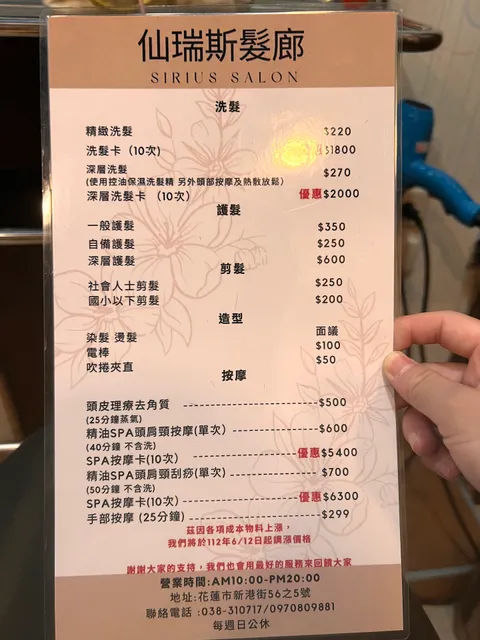 仙瑞斯髮廊
SIRIUS SALON
洗髮
精緻洗髮 $220
洗髮卡（10次） $1800
深層洗髮 $270
(使用控油保濕洗髮精 另外頭部按摩及熱敷放鬆)
深層洗髮卡 （10次） 優惠$2000
護髮
一般護髮 $350
自備護髮 $250
深層護髮 $600
剪髮
社會人士剪髮 $250
國小以下剪髮 $200
造型
染髮 燙髮 面議
電棒 $100
吹捲夾直 $50
按摩
頭皮理療去角質 ----------------$500
(25分鐘蒸氣)
精油SPA頭肩頸按摩(單次) ----------$600
(40分鐘 不含洗)
SPA按摩卡(10次) -------------優惠$5400
精油SPA頭肩頸刮痧(單次) ----------$700
(50分鐘 不含洗)
SPA按摩卡(10次) -------------優惠$6300
手部按摩 (25分鐘) ---------------$299
茲因各項成本物料上漲，
我們將於112年6/12日起調漲價格
謝謝大家的支持，我們也會用最好的服務來回饋大家
營業時間:AM10:00-PM20:00
地址:花蓮市新港街56之5號
聯絡電話 :038-310717/0970809881
每週日公休